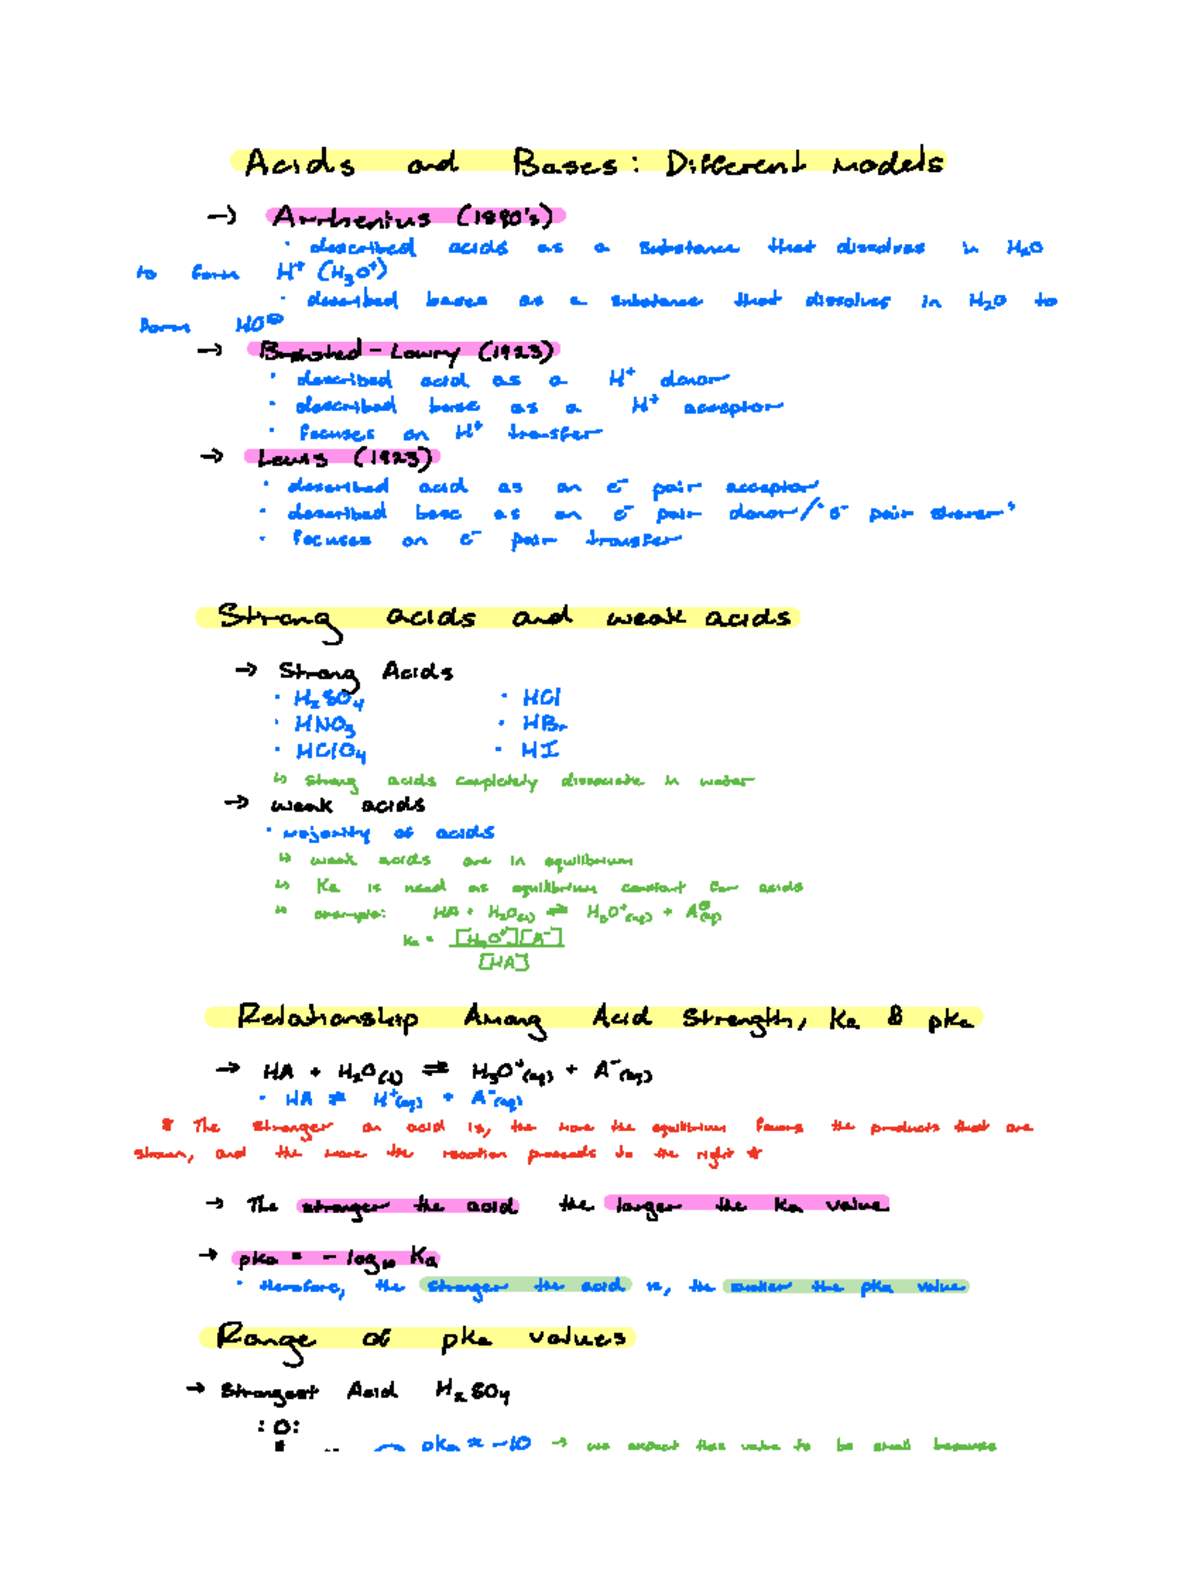 Acids and Bases: Different Models
→ Arrhenius (1880's)
· described acids as a substance that dissolves in H₂O
to form H⁺ (H₃O⁺)
· described bases as a substance that dissolves in H₂O to
form HO⊖
→ Brønsted-Lowry (1923)
· described acid as a H⁺ donor
· described base as a H⁺ acceptor
· focuses on H⁺ transfer
→ Lewis (1923)
· described acid as an e⁻ pair acceptor
· described base as an e⁻ pair donor/"e⁻ pair sharer"
· focuses on e⁻ pair transfer
Strong acids and weak acids
→ Strong Acids
· H₂SO₄ · HCl
· HNO₃ · HBr
· HClO₄ · HI
↳ strong acids completely dissociate in water
→ weak acids
· majority of acids
↳ weak acids are in equilibrium
↳ Ka is used as equilibrium constant for acids
↳ example: HA + H₂O(l) ⇌ H₃O⁺(aq) + A⊖(aq)
Ka = [H₃O⁺][A⁻]
[HA]
Relationship Among Acid Strength, Ka & pKa
→ HA + H₂O(l) ⇌ H₃O⁺(aq) + A⁻(aq)
· HA ⇌ H⁺(aq) + A⁻(aq)
* The stronger an acid is, the more the equilibrium favors the products that are
shown, and the more the reaction proceeds to the right *
→ The stronger the acid the larger the Ka value
→ pKa = -log₁₀ Ka
· therefore, the stronger the acid is, the smaller the pKa value
Range of pKa values
→ Strongest Acid H₂SO₄
:O:
pKa ≈ -10 → we expect this value to be small because